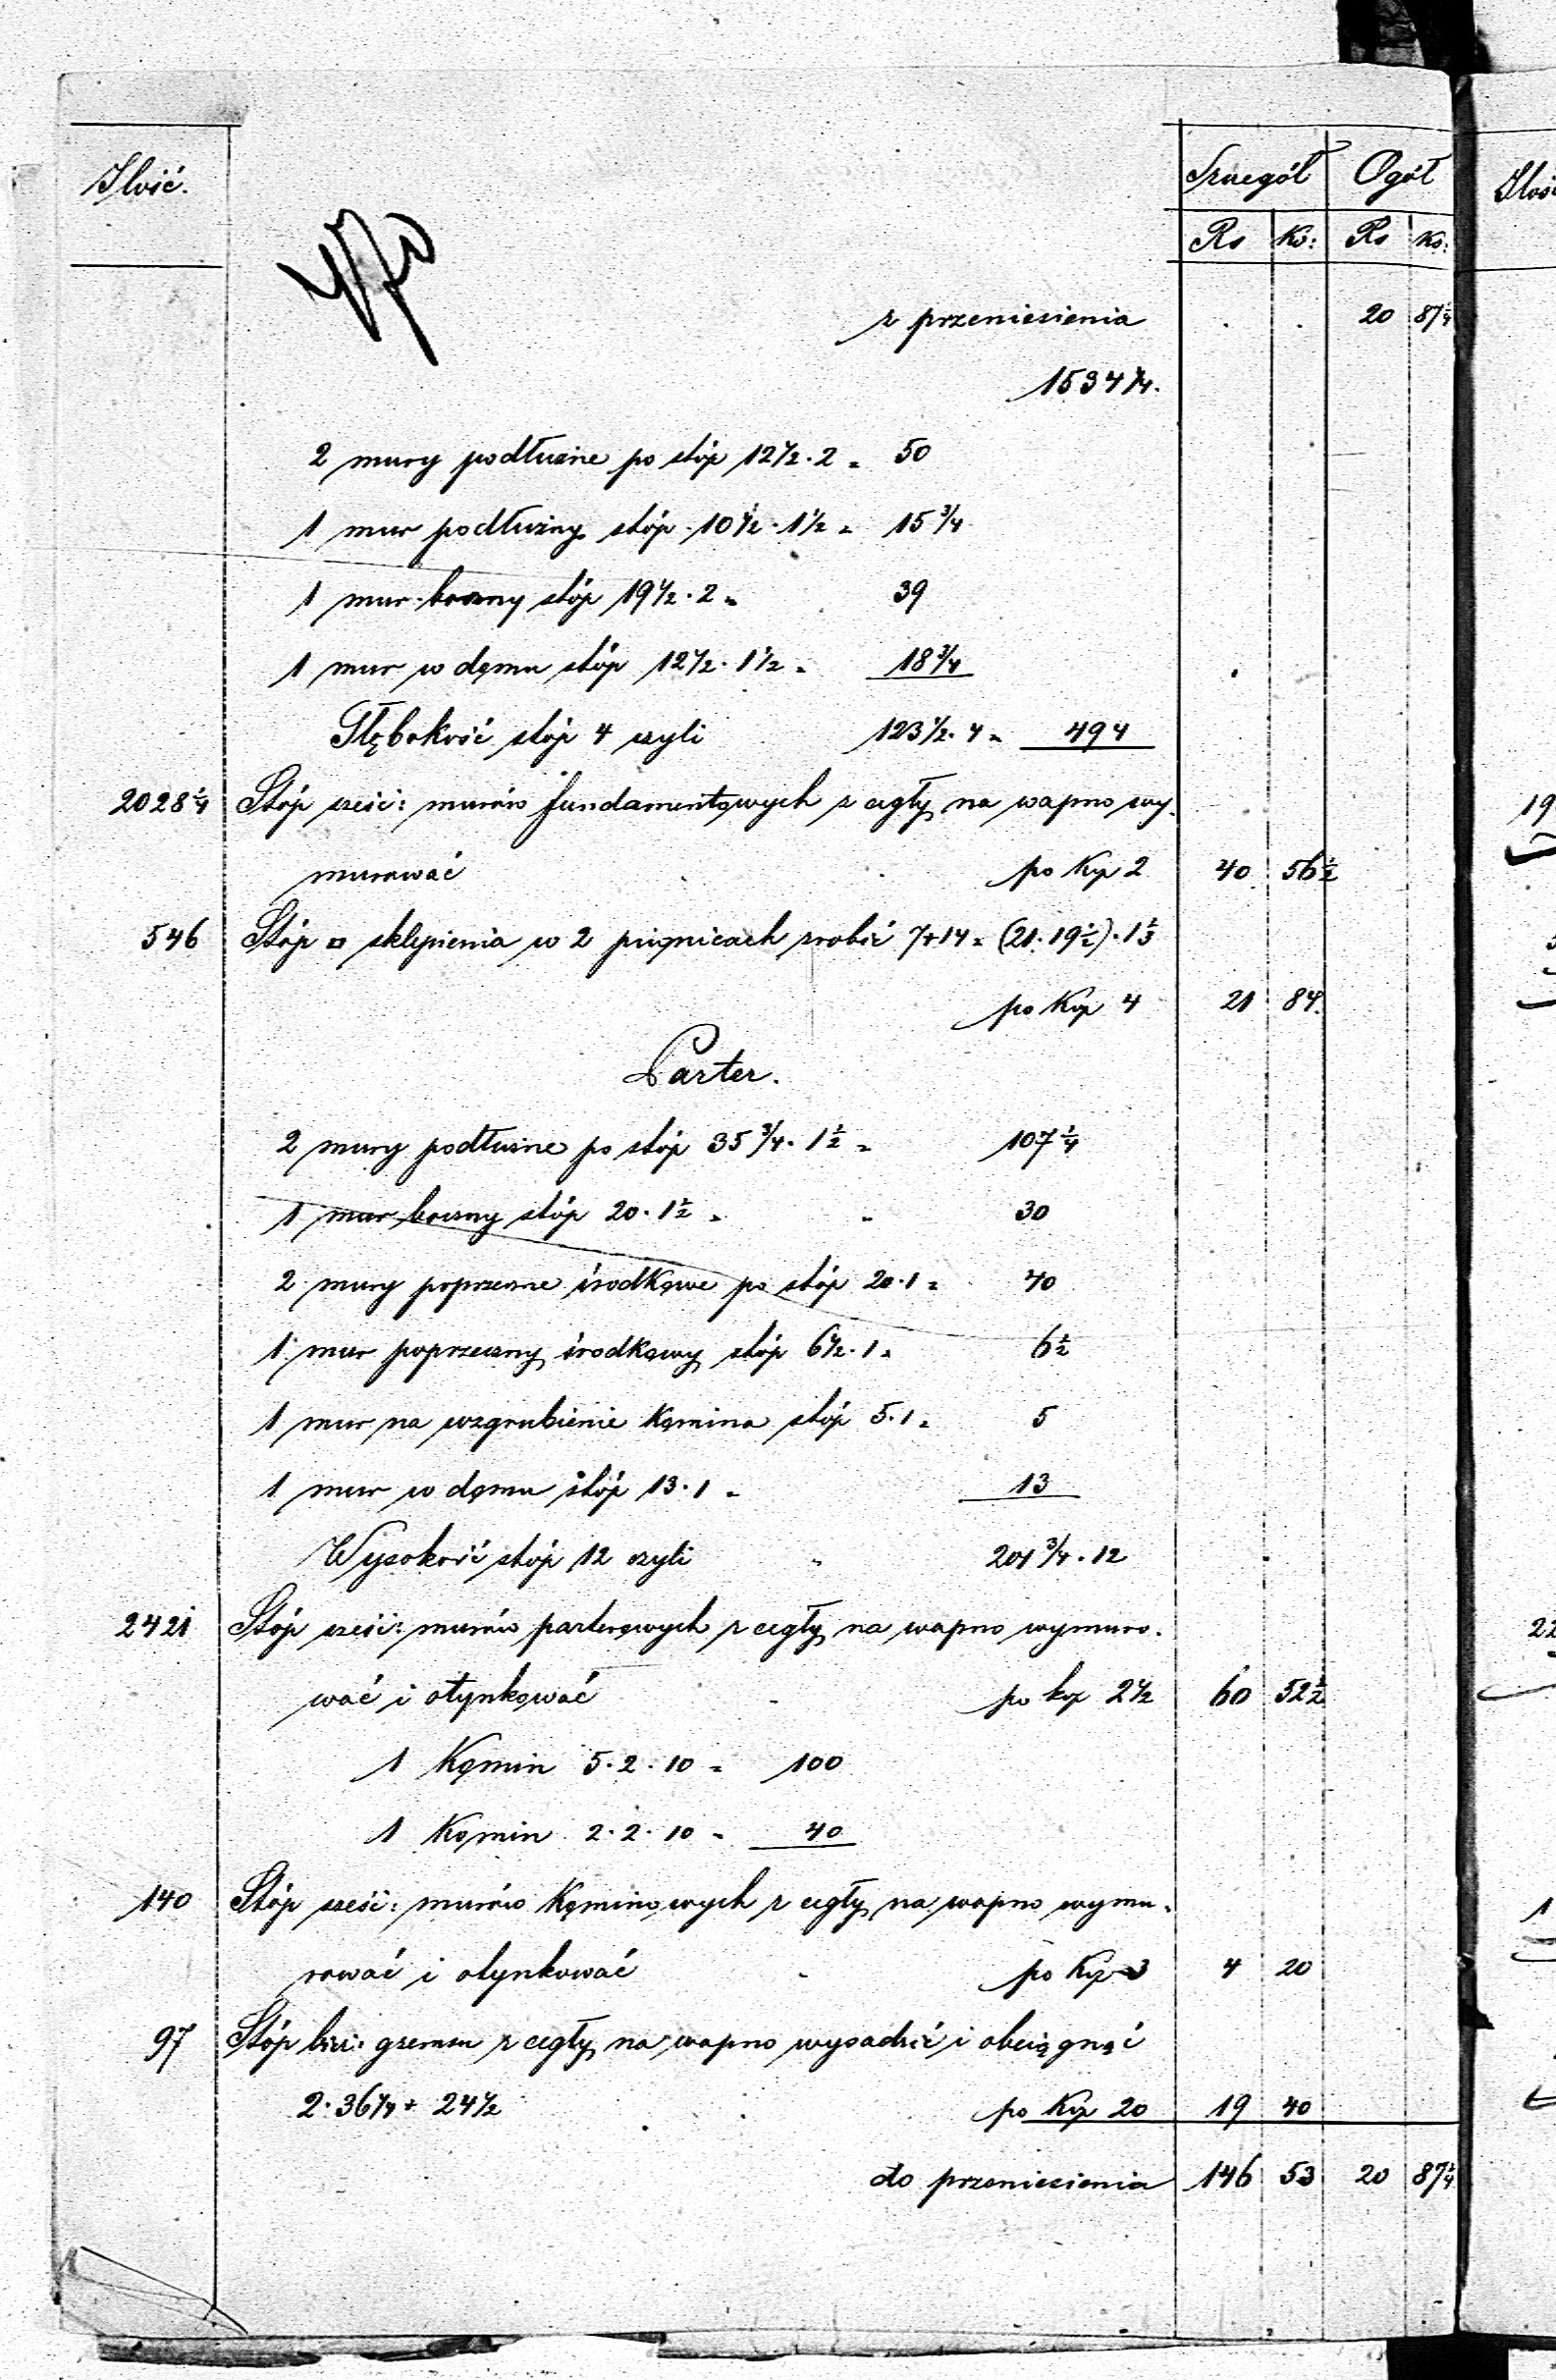 Ilość.
Szczegół Ogół
Rs Ko: Rs Ko:
z przeniesienia . . 20 87 1/4
1534 1/4.
2 mury podłużne po stóp 12 1/2 . 2 = 50
1 mur podłużny stóp 10 1/2 . 1 1/2 = 15 3/4
1 mur boczny stóp 19 1/2 . 2 = 39
1 mur w domu stóp 12 1/2 . 1 1/2 = 18 3/4
Głębokość stóp 4 czyli 123 1/2 . 4 = 494
2028 1/4 Stóp sześć: murów fundamentowych z cegły na wapno wy-
murować po Kop 2 40 56 1/2
546 Stóp □ sklepienia w 2 piwnicach zrobić 7+14 = (21 . 19 1/2) . 1 1/3
po Kop 4 21 84.
Parter.
2 mury podłużne po stóp 35 3/4 . 1 1/2 = 107 1/4
1 mur boczny stóp 20 . 1 1/2 = " 30
2 mury poprzeczne środkowe po stóp 20 . 1 = 40
1 mur poprzeczny środkowy stóp 6 1/2 . 1 = 6 1/2
1 mur na wzgrubienie Komina stóp 5 . 1 = 5
1 mur w domu stóp 13 . 1 = 13
Wysokość stóp 12 czyli " 201 3/4 . 12
2421 Stóp sześć: murów parterowych z cegły na wapno wymuro-
wać i otynkować po kop 2 1/2 60 52 1/2
1 Komin 5 . 2 . 10 = 100
1 Komin 2 . 2 . 10 = 40
140 Stóp sześć: murów Kominowych z cegły na wapno wymu-
rować i otynkować po Kop 3 4 20
97 Stóp bież: gzemsu z cegły na wapno wysadzić i obciągnąć
2 . 36 1/4 + 24 1/2 po Kop 20 19 40
do przeniesienia 146 53 20 87 1/4